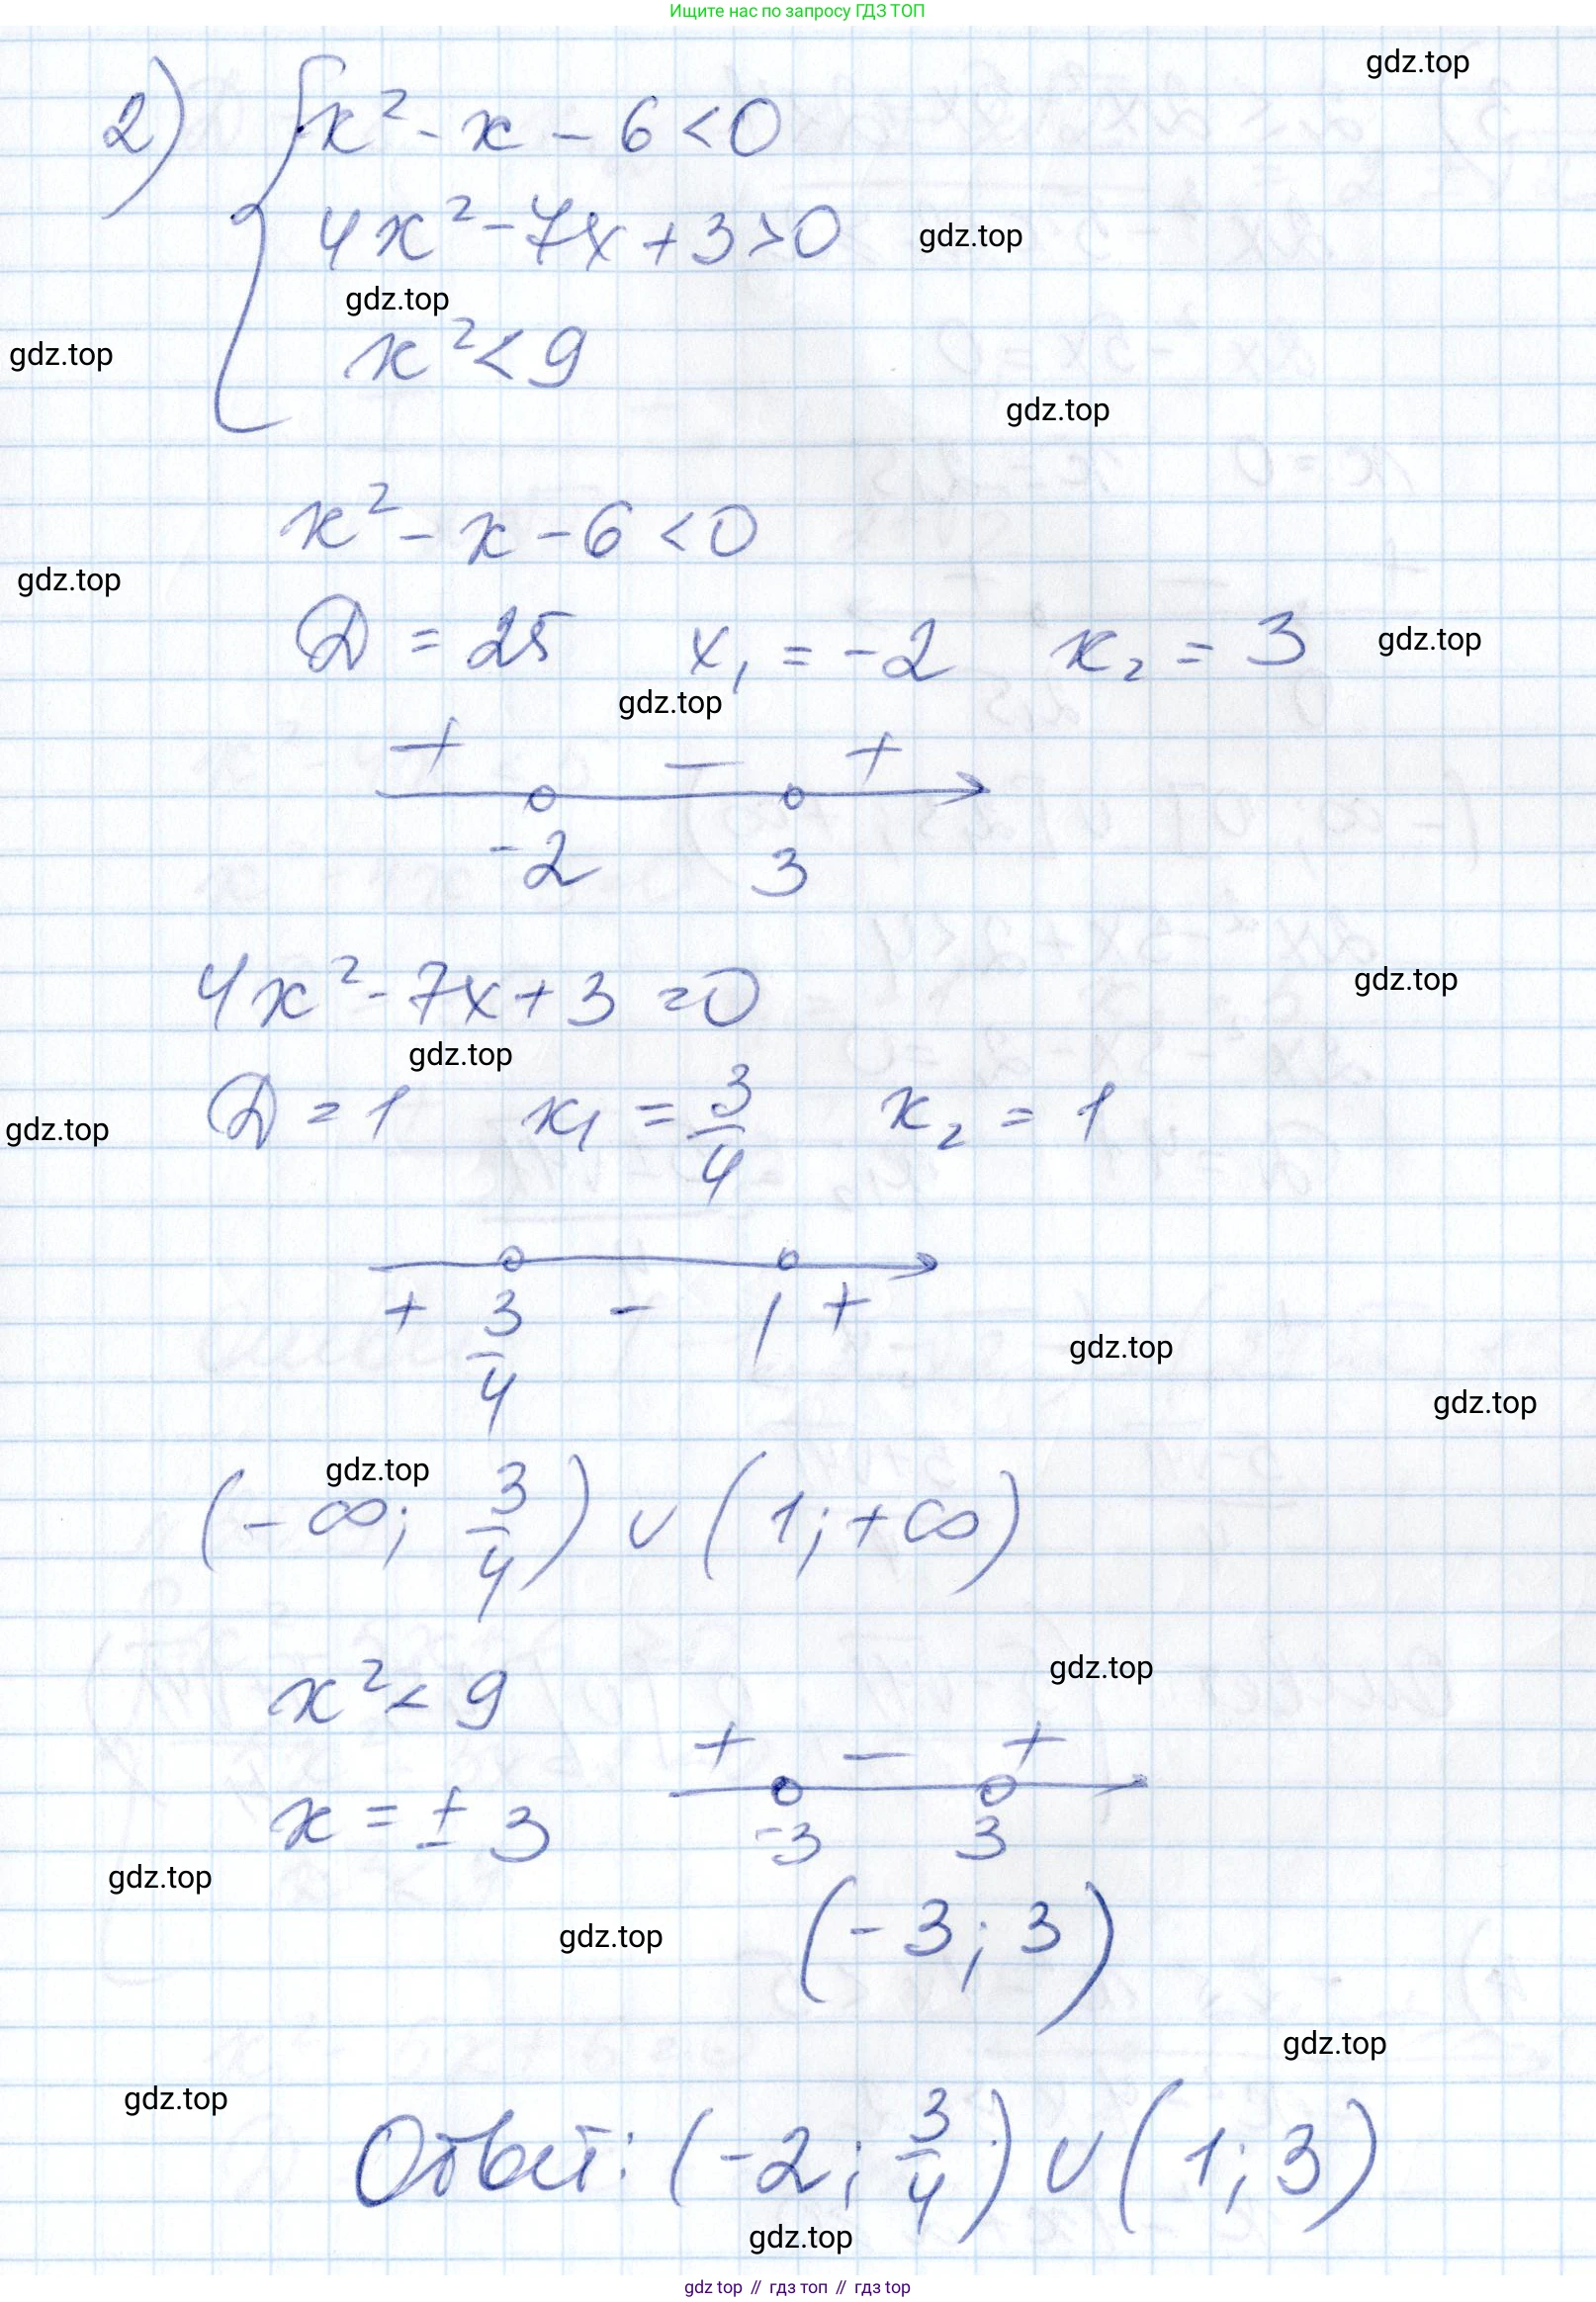 Ищите нас по запросу ГДЗ ТОП
gdz.top
2) { x² - x - 6 < 0
4x² - 7x + 3 > 0
gdz.top
gdz.top
gdz.top
x² < 9
gdz.top
x² - x - 6 < 0
gdz.top
D = 25 x₁ = -2 x₂ = 3
gdz.top
gdz.top
+ − +
-2 3
4x² - 7x + 3 = 0
gdz.top
gdz.top
D = 1 x₁ = 3/4 x₂ = 1
gdz.top
+ 3/4 - 1 +
gdz.top
gdz.top
gdz.top
(-∞; 3/4) ∪ (1; +∞)
gdz.top
x² < 9
+ − +
x = ± 3
-3 3
gdz.top
gdz.top
(-3; 3)
gdz.top
gdz.top
Ответ: (-2; 3/4) ∪ (1; 3)
gdz.top
gdz top // гдз топ // гдз top